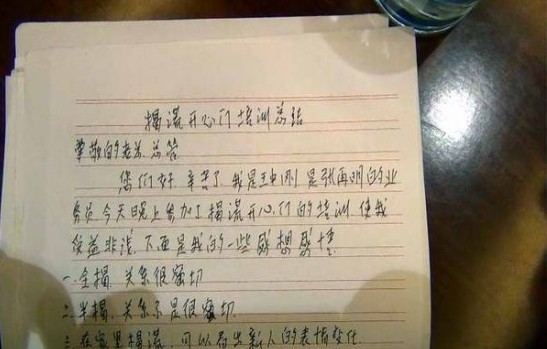 揭谎开心门培训总结
尊敬的老总、总管
您们好 辛苦了 我是王中刚 是张再明的业
务员 今天晚上参加了揭谎开心门的培训 使我
受益非浅 下面是我的一些感想感悟
一.全揭、关系很密切
二.半揭、关系不是很密切
三.在家里揭谎、可以看出新人的表情变化